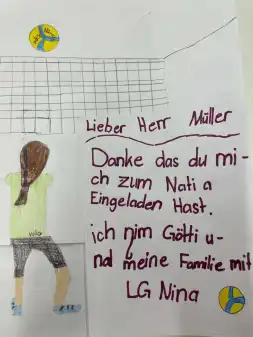 Lieber Herr Müller
Danke das du mi-
ch zum Nati a
Eingeladen Hast.
ich nim Götti u-
nd meine Familie mit
LG Nina